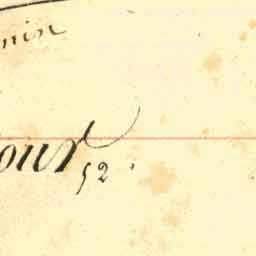 min
our
52.